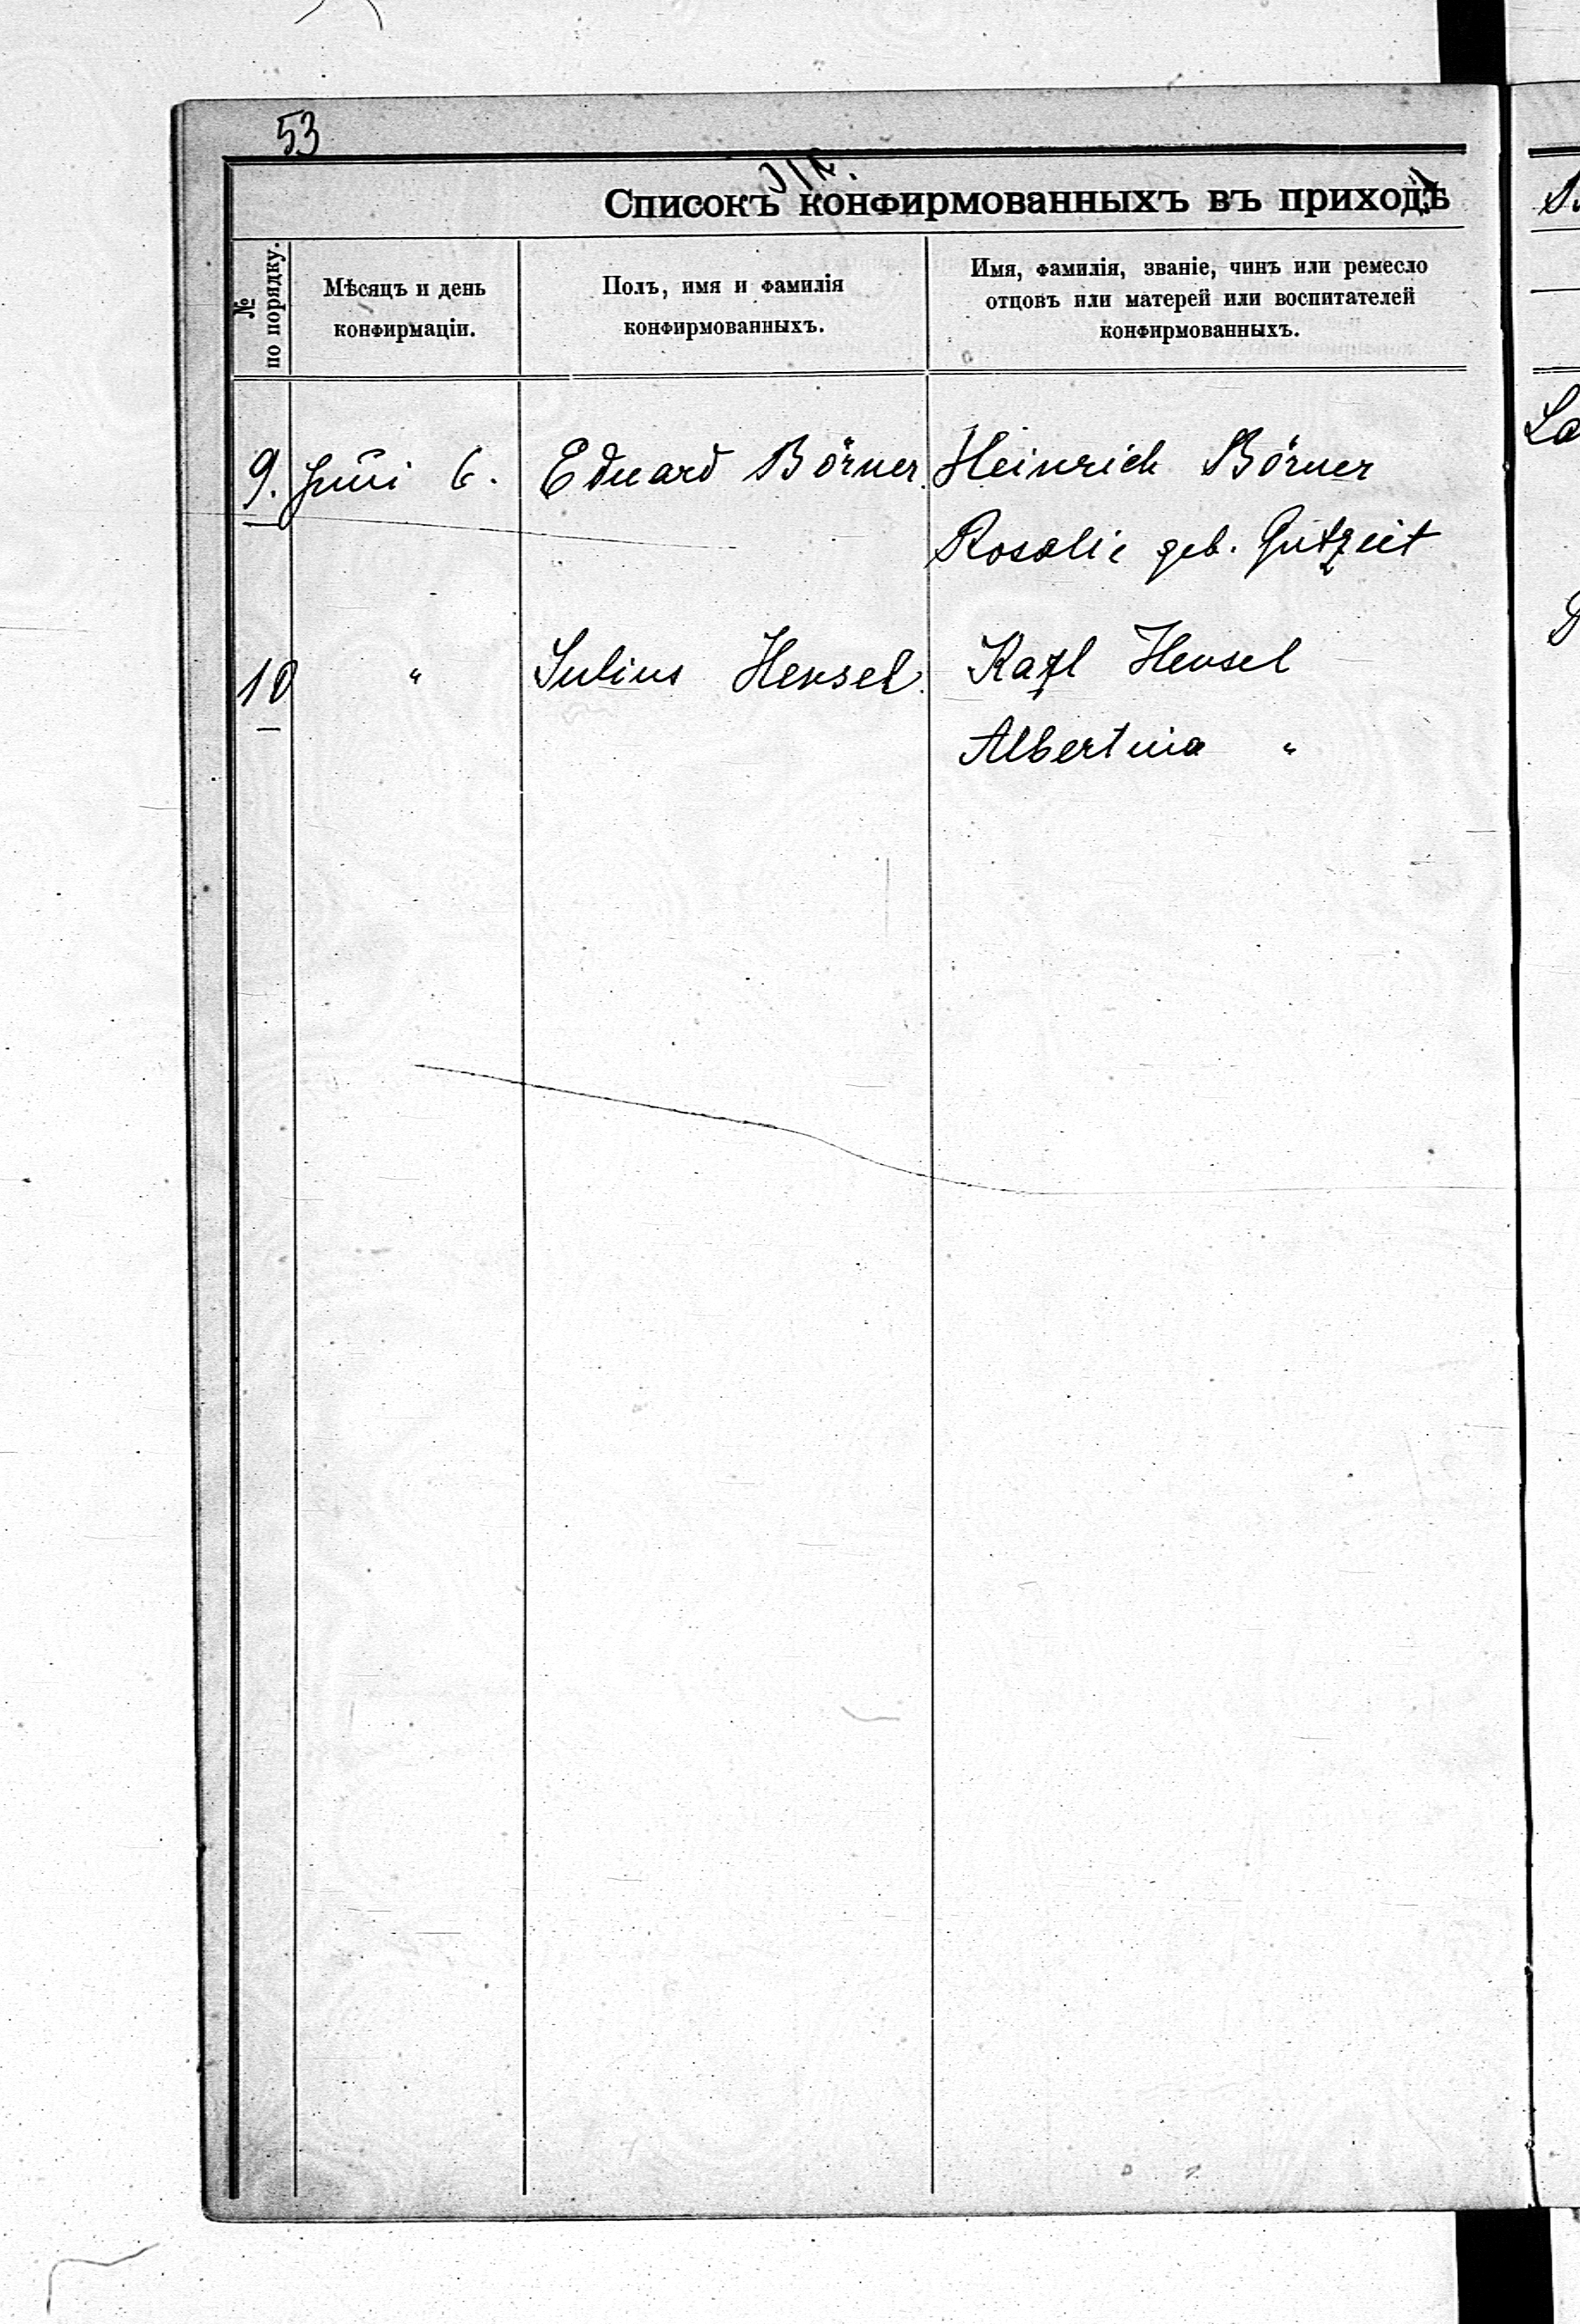 53
Списокъ конфирмованныхъ въ приходѣ
№ по порядку.
Мѣсяцъ и день
конфирмаціи.
Полъ, имя и фамилія
конфирмованныхъ.
Имя, фамилія, званіе, чинъ или ремесло
отцовъ или матерей или воспитателей
конфирмованныхъ.
9. Juni 6. Eduard Börner. Heinrich Börner
Rosalie geb. Gutzeit
10 " Julius Hensel. Karl Hensel
Albertina "